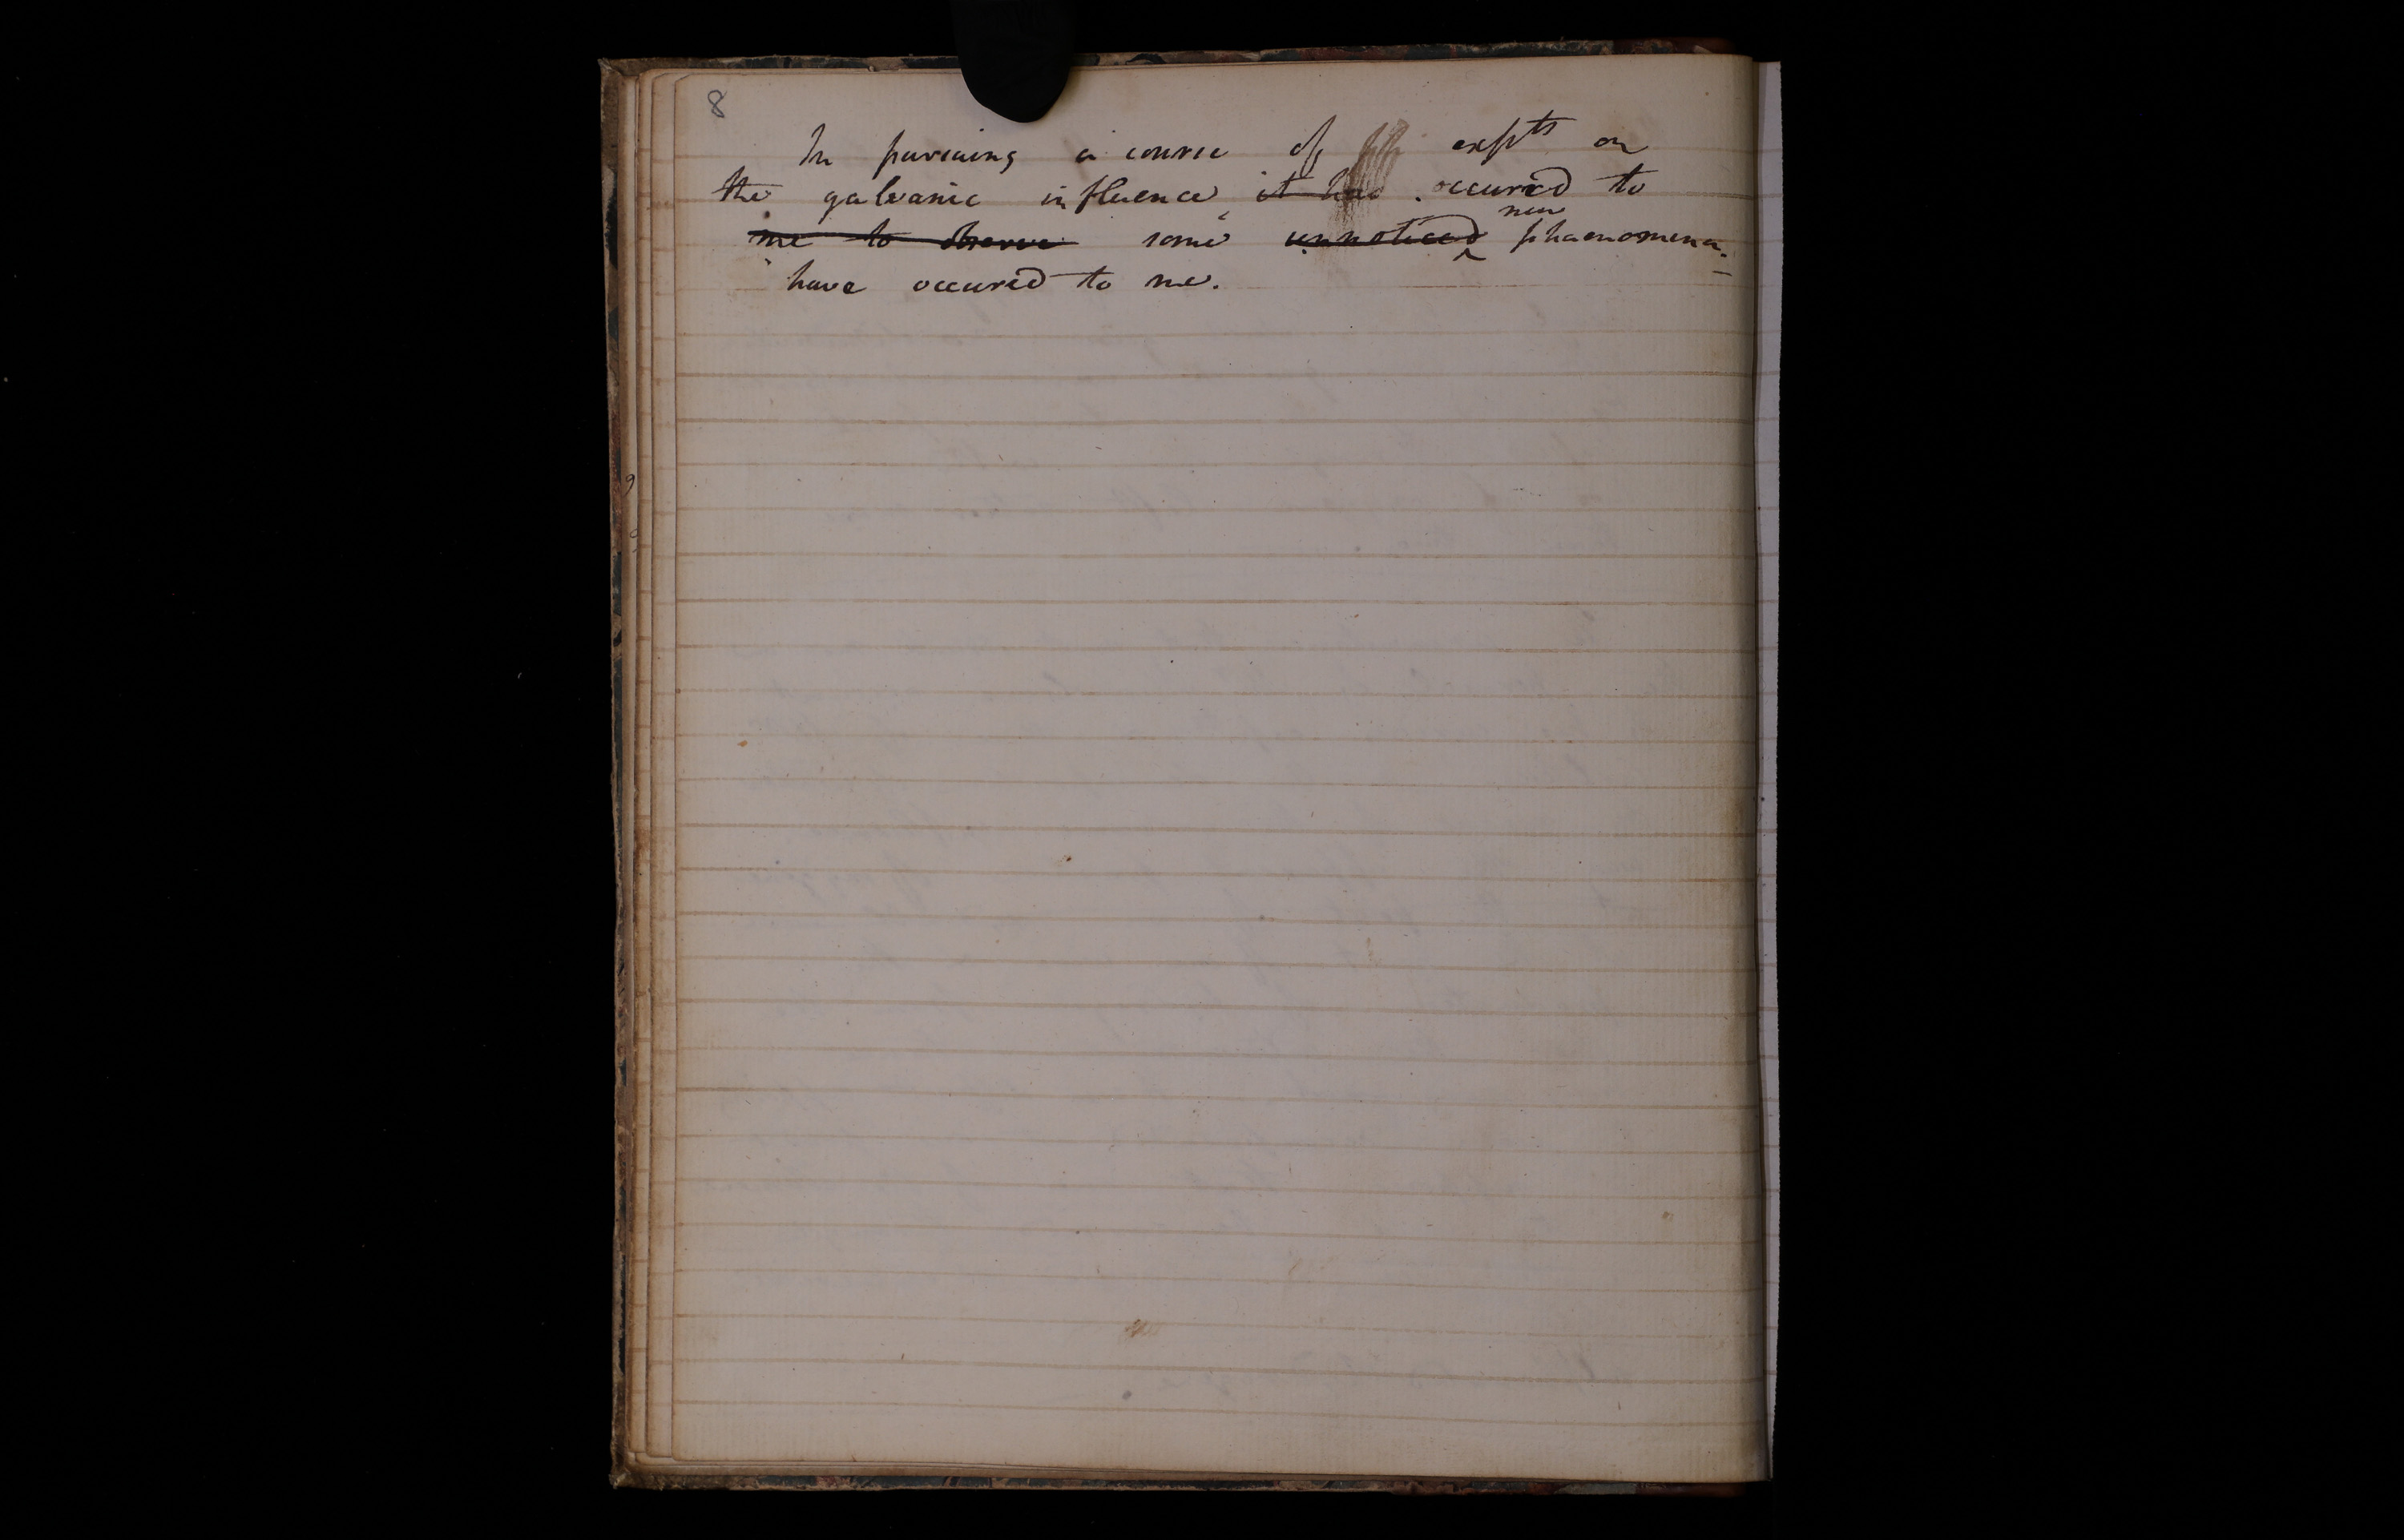 8
In pursuing a course of expts on
the galvanic influence, it has occured to
new
me to observe some unnoticed phaenomena.
have occured to me.